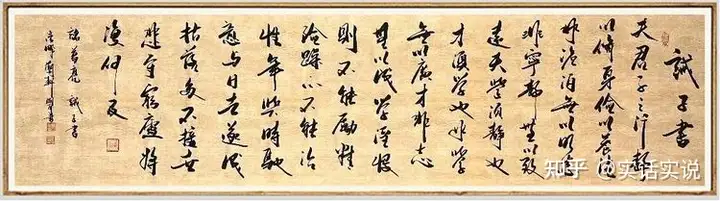 誡子書
夫君子之行靜
以脩身儉以養德
非澹泊無以明志
非寧靜無以致
遠夫學須靜也
才須學也非學
無以廣才非志
無以成學淫慢
則不能勵精
險躁則不能治
性年與時馳
意與日去遂成
枯落多不接世
悲守窮廬將
復何及
諸葛亮 誡子書
知乎 @实话实说